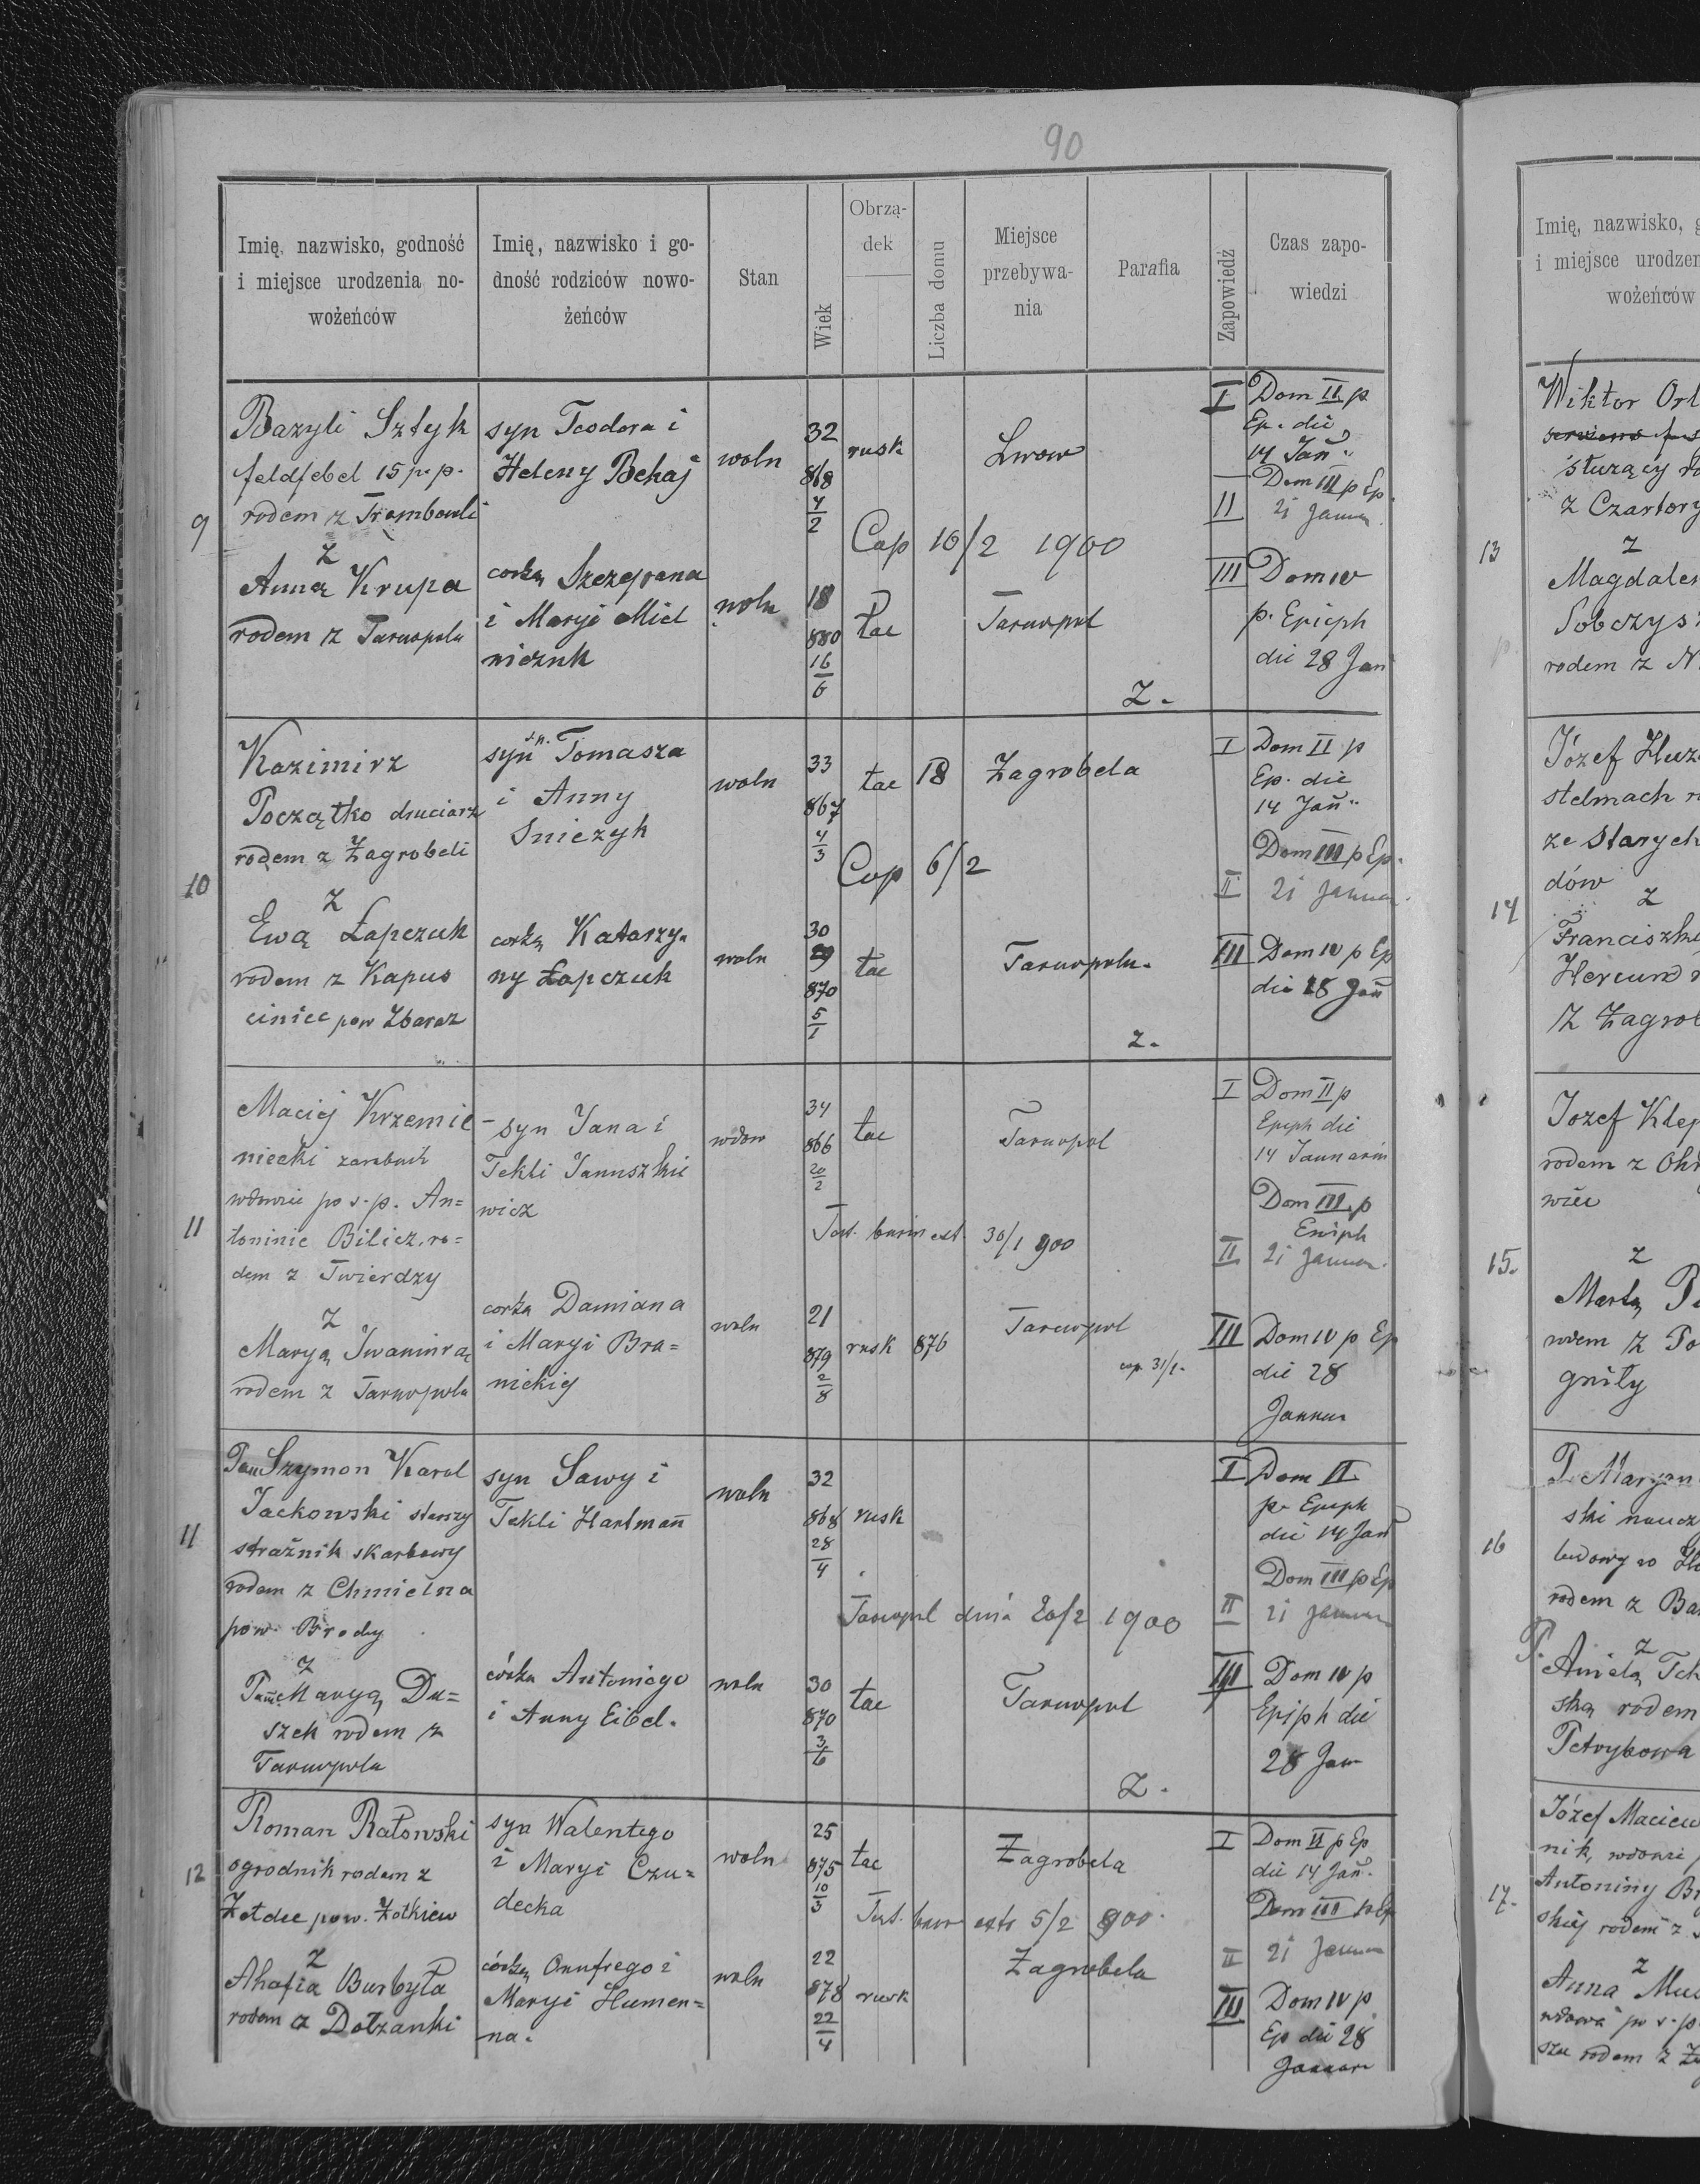 90
Imię, nazwisko, godność
i miejsce urodzenia no-
wożeńców
Imię, nazwisko i go-
dność rodziców nowo-
żeńców
Stan
Wiek
Obrzą-
dek
Liczba domu
Miejsce
przebywa-
nia
Parafia
Zapowiedź
Czas zapo-
wiedzi
9
Bazyli Sztyk
feldfebel 15 p. p.
rodem z Trembowli
z
Anną Krupa
rodem z Tarnopola
syn Teodora i
Heleny Bekaj
corką Szczepana
i Maryi Miel
niczuk
woln
woln
32
868
4
2
18
880
16
6
rusk
Lwow
Cop 10/2 1900
łac
Tarnopol
Z.
I
Dom II p
Ep. die
14 Jan̄
II
Dom III p Ep.
21 Januar
III
Dom IV
p. Epiph
die 28 Jan
10
Kazimirz
Początko druciarz
rodem z Zagrobeli
z
Ewą Łapczuk
rodem z Kapus
ciniec pow Zbaraz
syn ś.p. Tomasza
i Anny
Snieżyk
corką Katarzy-
ny Łapczuk
woln
woln
33
867
4
3
30
870
5
1
łac
18
Zagrobela
Cop 6/2
łac
Tarnopolu.
Z.
I
Dom II p
Ep. die
14 Jan̄
II
Dom III p Ep.
21 Januar
III
Dom IV p Ep
die 28 Jan̄
11
Maciej Krzemie
niecki zarobnik
wdowiec po s. p. An=
toninie Bilicz. ro=
dem z Twierdzy
z
Maryą Iwanirą
rodem z Tarnopola
syn Jana i
Tekli Januszkie
wicz
corka Damiana
i Maryi Bra=
nickiej
wdow
woln
34
866
20
2
21
879
2
8
łac
Tarnopol
30/1 900
rusk
876
Tarnopol
cop. 31/1.
I
Dom II p
Epiph die
14 Januarii
II
Dom III p
Epiph
21 Januar.
III
Dom IV p Ep
die 28
Januar
11
Pan Szymon Karol
Jackowski starszy
strażnik skarbowy
rodem z Chmielna
pow. Brody
z
Pan̄ą Maryą Du=
szek rodem z
Tarnopola
syn Sawy i
Tekli Hartman̄
córka Antoniego
i Anny Eibel.
woln
woln
32
868
28
4
30
870
3
6
rusk
Tarnopol dnia 20/2 1900
łac
Tarnopol
Z.
I
Dom II
p. Epiph
die 14 Jan̄
II
Dom III p Ep
21 Januar
III
Dom IV p
Epiph die
28 Jan
12
Roman Ratowski
ogrodnik rodem z
Żołdec pow. Żółkiew
z
Ahafia Burbyła
rodem z Dołzanki
syn Walentego
i Maryi Czu=
decka
córką Onufrego i
Maryi Humen=
na.
woln
woln
25
875
10
3
22
878
22
4
łac
Zagrobela
5/2 900
rusk
Zagrobela
I
Dom II p Ep
die 14 Jan̄.
II
Dom III p Ep
21 Januar
III
Dom IV p
Ep die 28
Januar
Imię, nazwisko,
i miejsce urodzen
wożeńców
13
Wiktor Orl
służący
z Czartory
z
Magdalen
Sobczys
rodem z N
14
Józef Huz
stelmach
ze Starych
dów
z
Franciszk
Hercun
z Zagrob
15.
Jozef Klep
rodem z Ohr
wiec
z
Martą
rodem z Po
gniły
16
P. Maryan
ski naucz
ludowy
rodem z Ba
z
P. Anielą Tch
ską rodem
Petrykowa
17.
Józef Maciew
nik, wdowiec
Antoniny Br
skiej rodem z
z
Anna Mus
wdowa po s. p.
rodem z